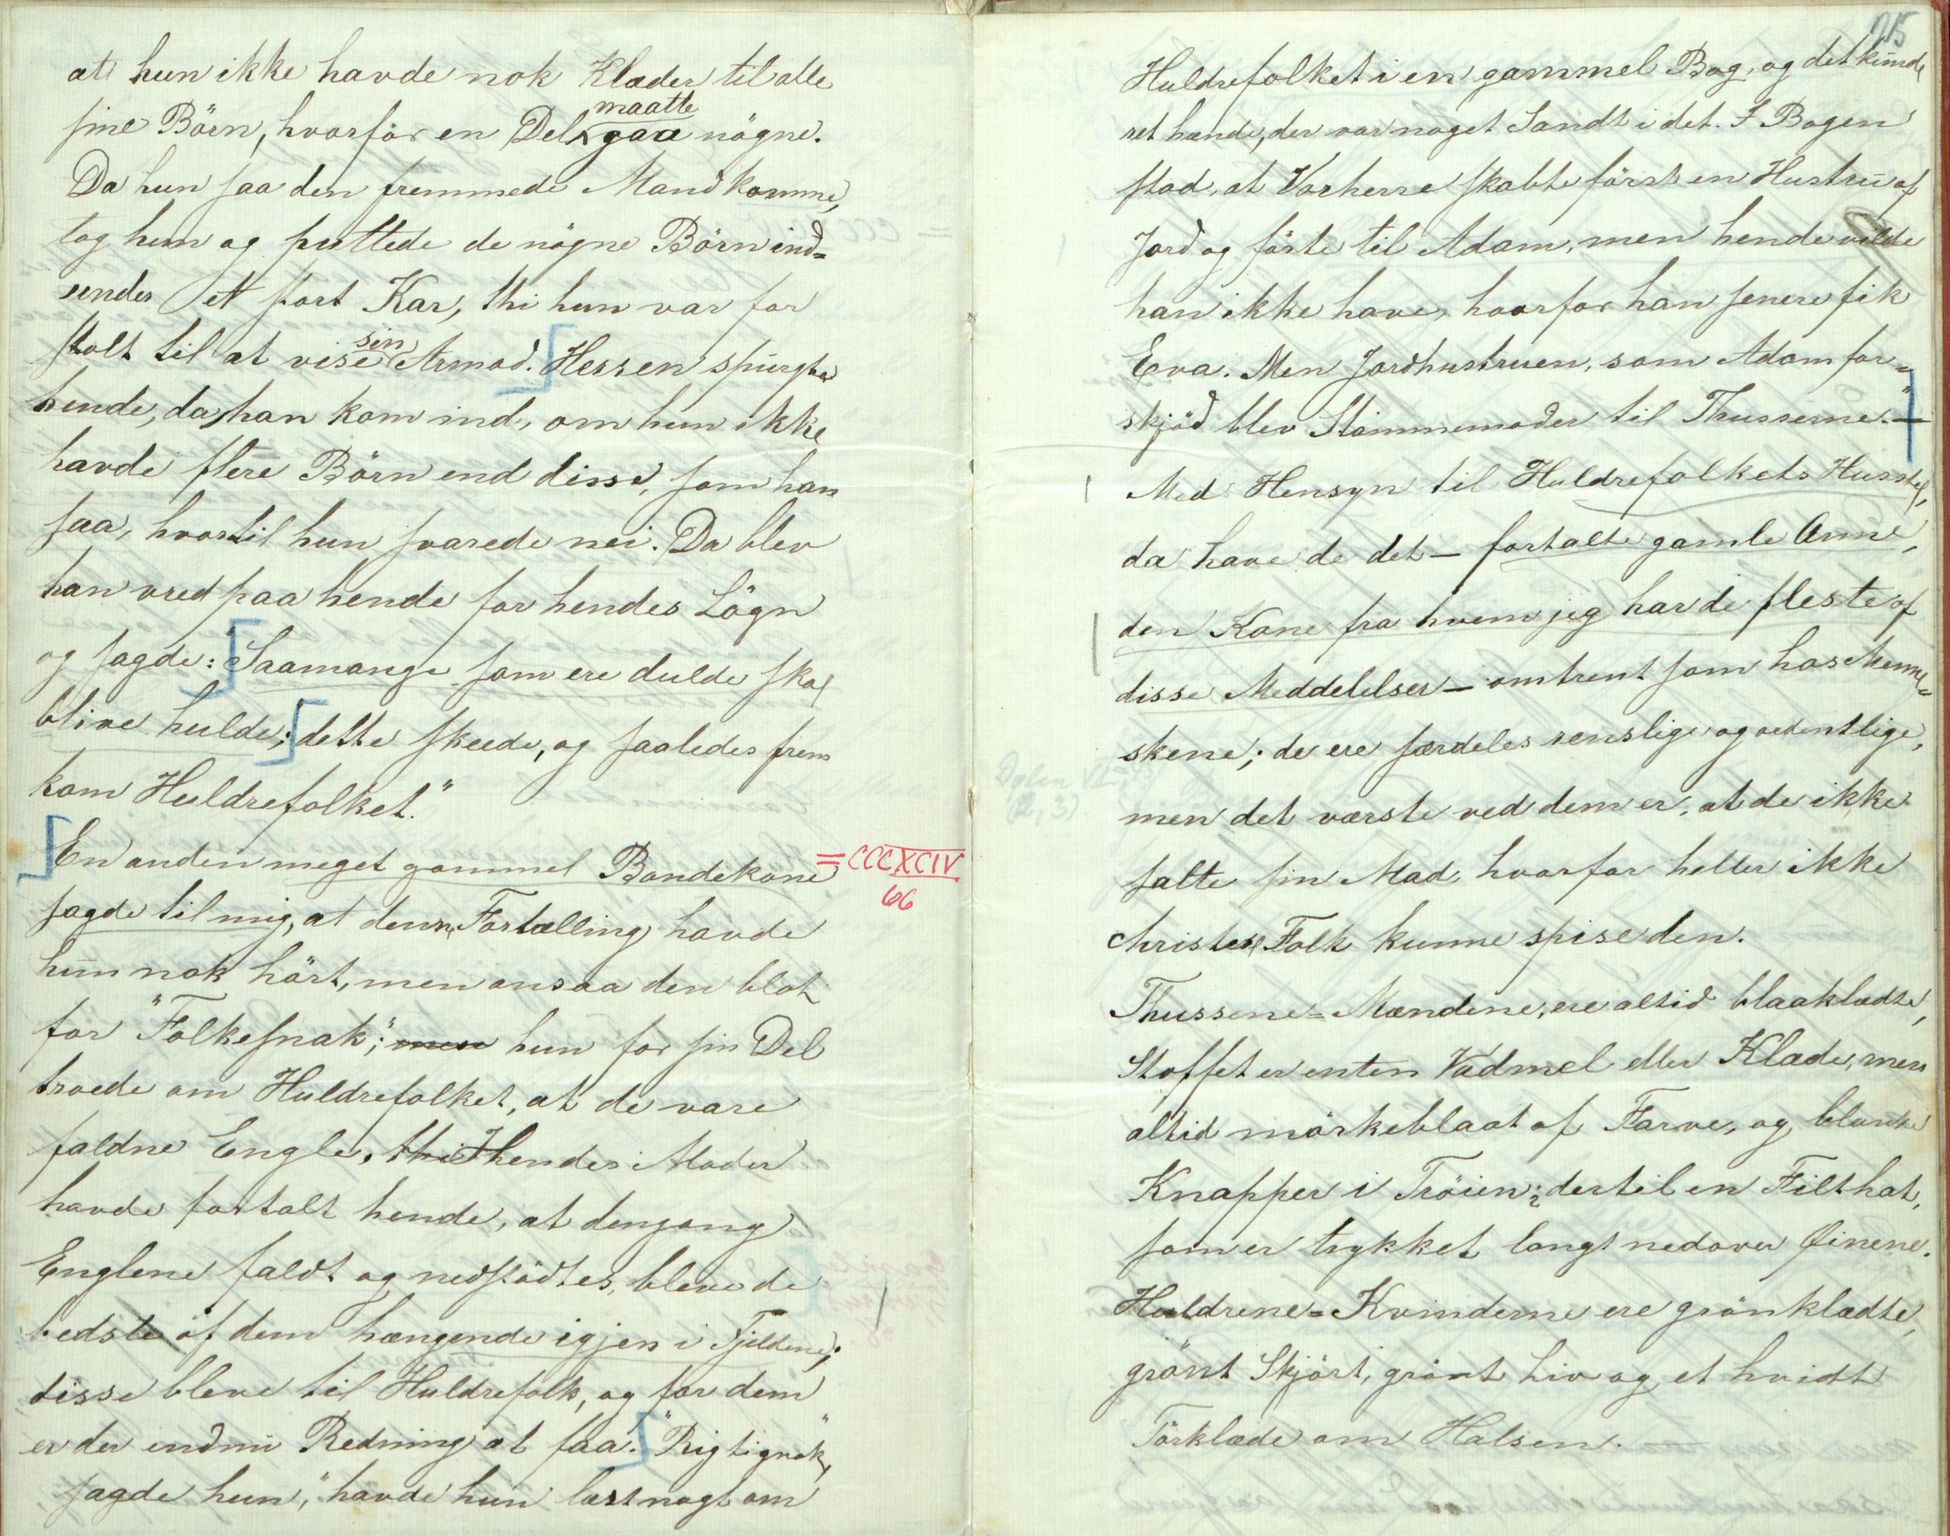 at hun ikke havde nok Klæder til alle
sine Börn, hvorfor en Del maatte gaa nögne.
Da hun saa den fremmede Mand komme,
tog hun og puttede de nögne Börn ind=
under et stort Kar, thi hun var for
stolt til at vise sin Armod. Herren spurgte
hende, da han kom ind, om hun ikke
havde flere Börn end disse, som han
saa, hvortil hun svarede nei. Da blev
han vred paa hende for hendes Lögn
og sagde: "Saamange som ere dulde skal
blive hulde; dette skede, og saaledes frem
kom Huldrefolket."
En anden meget gammel Bondekone = CCCXCIV
66
sagde til mig, at denne Fortælling havde
hun nok hört, men ansaa den blot
for "Folkesnak"; men hun for sin Del
troede om Huldrefolket, at de vare
faldne Engle, thi hendes Moder
havde fortalt hende, at dengang
Englene faldt og nedstödtes, bleve de
bedste af dem hængende igjen i Fjeldene;
disse bleve til Huldrefolk, og for dem
er der endnu Redning at faa. "Rigtignok",
sagde hun, "havde hun læst nogt om
Huldrefolket i en gammel Bog, og det kunde
ret hænde, der var noget Sandt i det. I Bogen
stod, at Vorherre skabte först en Hustru af
Jord og förte til Adam, men hende vilde
han ikke have, hvorfor han senere fik
Eva. Men Jordhustruen, som Adam for=
skjöd blev Stammemoder til Thusserne." —
Med Hensyn til Huldrefolkets Husstel,
da have de det — fortalte gamle Anne,
den Kone fra hvem jeg har de fleste af
disse Meddelelser — omtrent som hos Menne=
skene; de ere særdeles renslige og ordentlige,
men det værste ved dem er, at de ikke
salte sin Mad, hvorfor heller ikke
christent Folk kunne spise den.
Thussene = Mændene, ere altid blaaklædte,
Stoffet er enten Vadmel eller Klæde, men
altid mörkeblaat af Farve, og blanke
Knapper i Tröien; dertil en Filthat,
som er trykket langt nedover Öinene.
Huldrene = Kvinderne ere grönklædte,
grönt Skjört, grönt Liv og et hvidt
Törklæde om Halsen. —